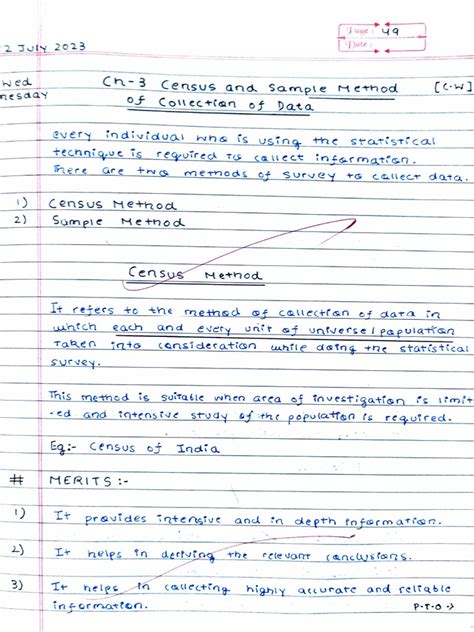 Page: 49
Date:
2 July 2023
Wed
nesday
Ch-3 Census and Sample Method [C.W]
of Collection of Data
every individual who is using the statistical
technique is required to collect information.
There are two methods of survey to collect data.
1) Census Method
2) Sample Method
Census Method
It refers to the method of collection of data in
which each and every unit of universe/population
taken into consideration while doing the statistical
survey.
This method is suitable when area of investigation is limit
-ed and intensive study of the population is required.
Eg:- Census of India
# MERITS :-
1) It provides intensive and in depth information.
2) It helps in deriving the relevant conclusions.
3) It helps in collecting highly accurate and reliable
information. P.T.O->